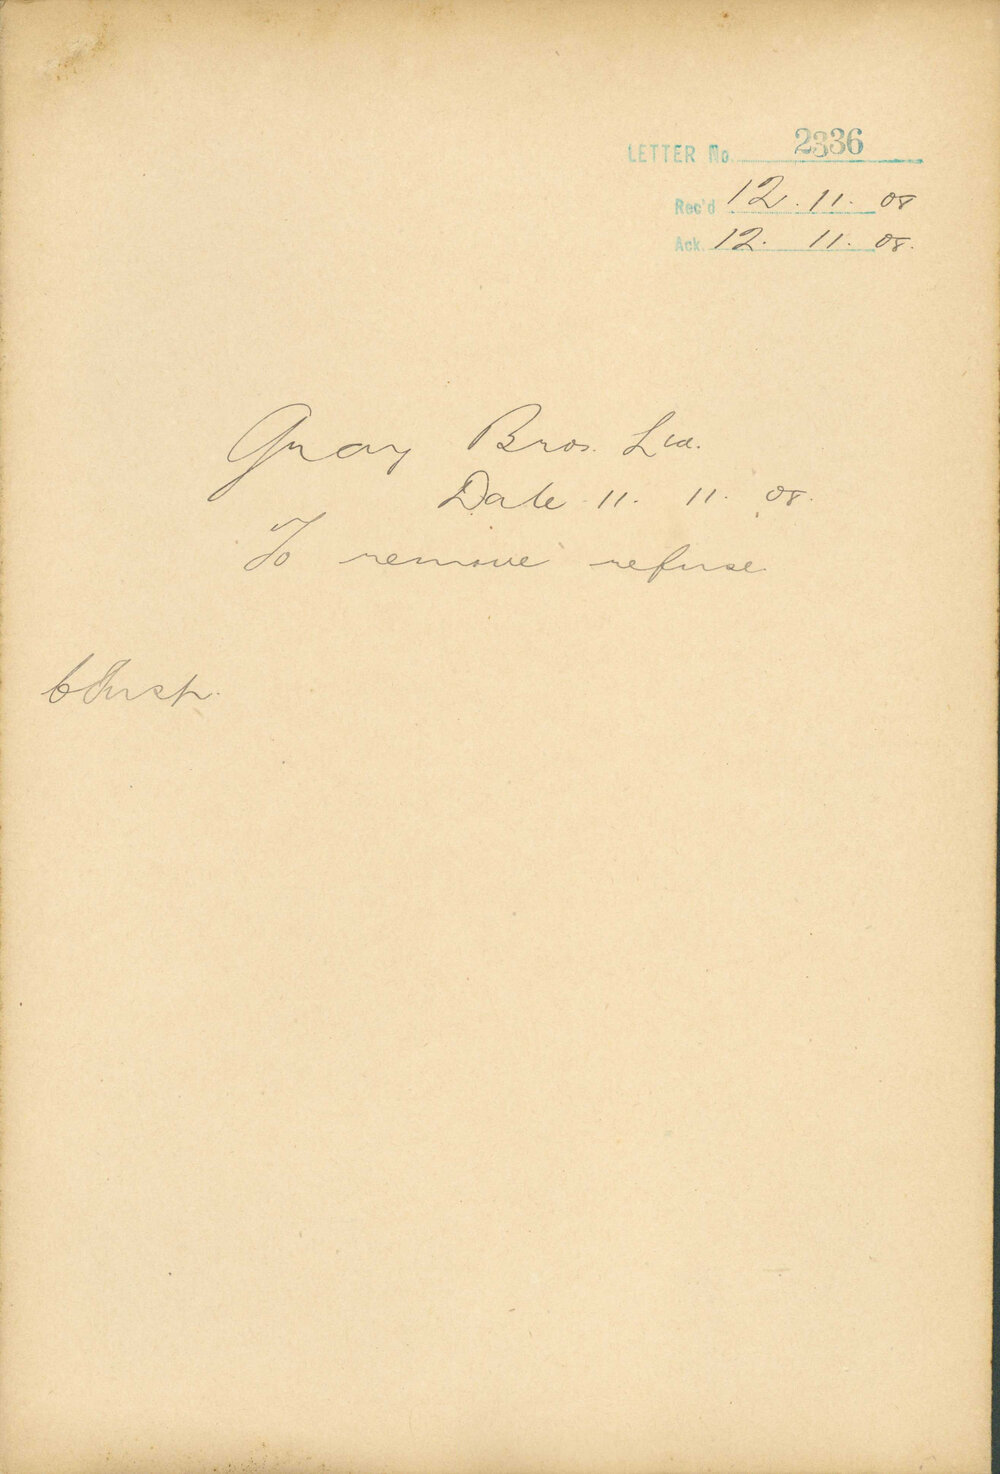 LETTER No. 2336
Rec'd 12. 11. 08
Ack. 12. 11. 08.
Gray Bros. Ltd.
Date 11. 11. 08.
To remove refuse